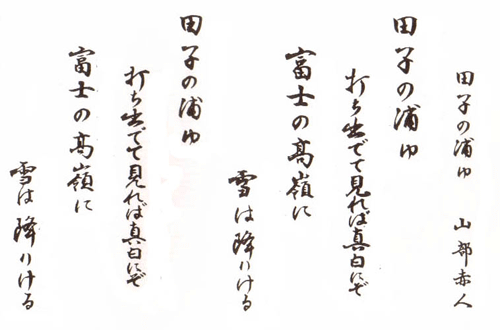 田子の浦ゆ 山部赤人
田子の浦ゆ
打ち出でて見れば真白にぞ
富士の高嶺に
雪は降りける
田子の浦ゆ
打ち出でて見れば真白にぞ
富士の高嶺に
雪は降りける